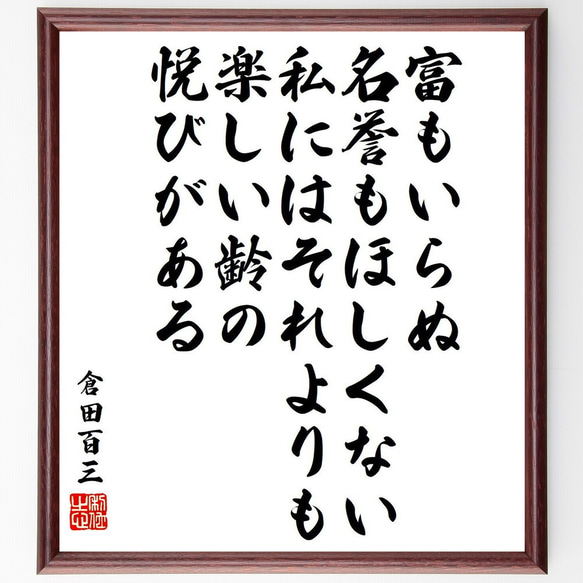 富もいらぬ
名誉もほしくない
私にはそれよりも
楽しい齢の
悦びがある
倉田百三